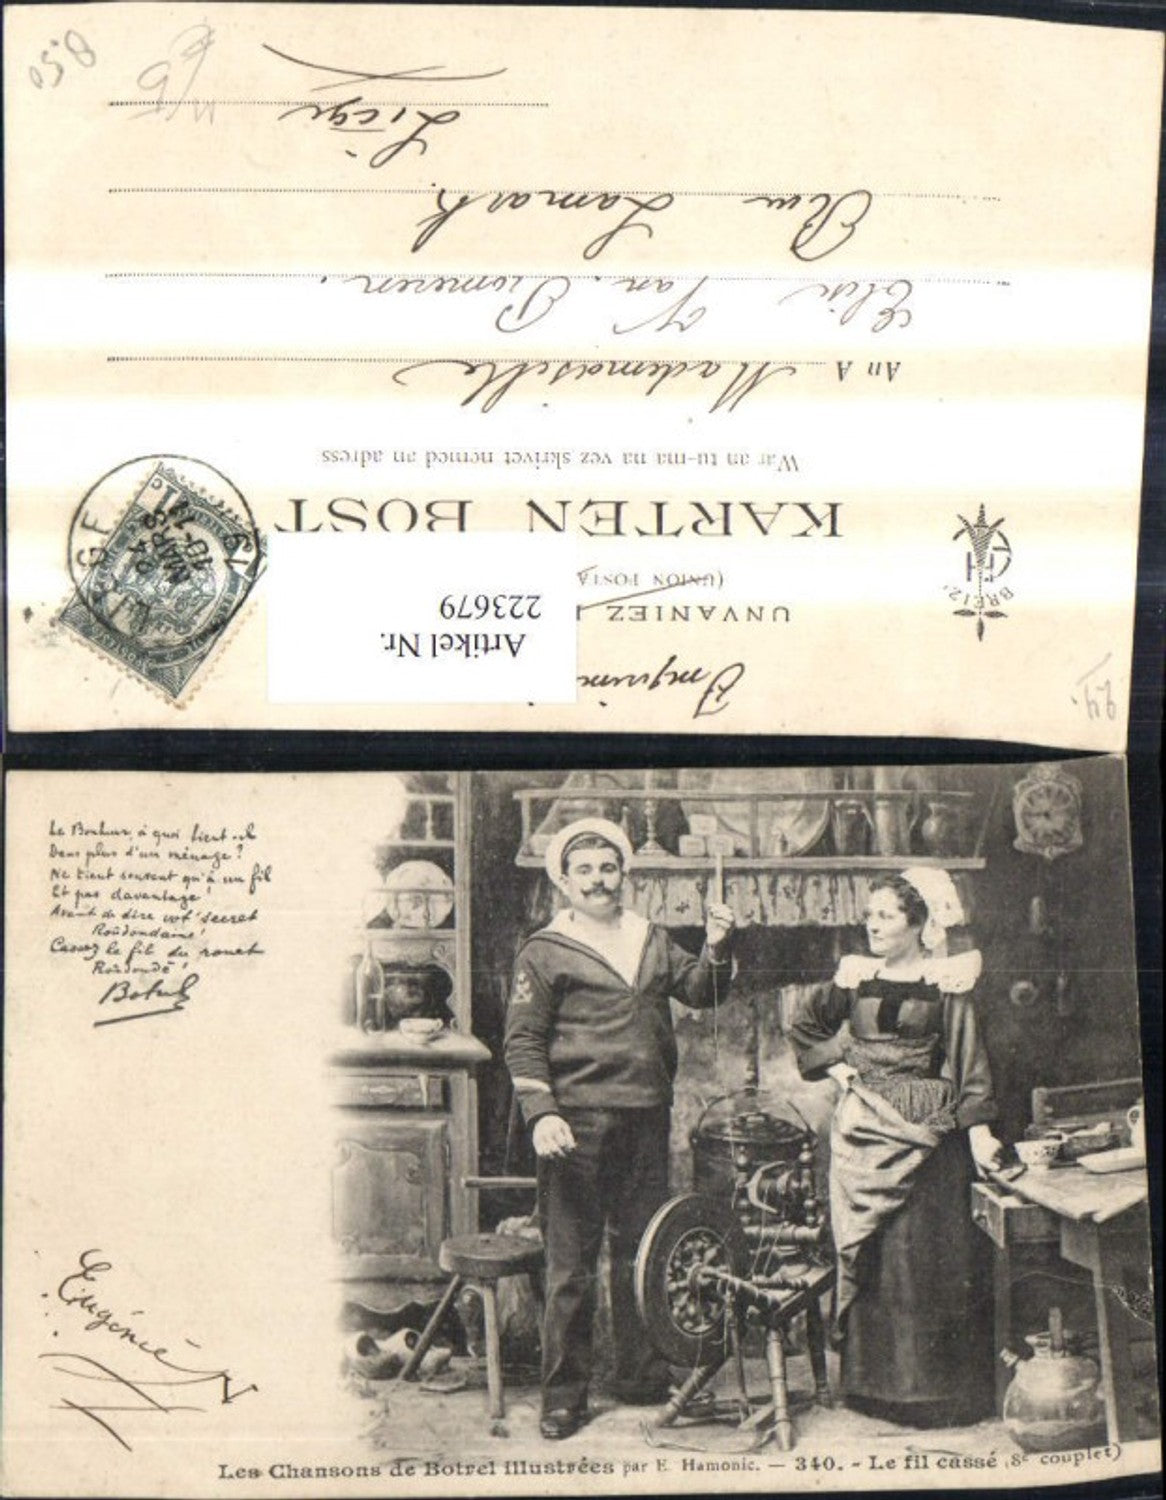 8.50
Liège
Rue Lamark.
Van
An A Mademoiselle
War an tu-ma na vez skrivet nemed an adress
KARTEN BOST
(UNION POSTA
UNVANIEZ
BREIZ
Artikel Nr.
223679
24
MARS
10-11
19
Le Bonheur, à quoi tient-il
Dans plus d'un ménage ?
Ne tient souvent qu'à un fil
Et pas davantage !
Avant de dire vot' secret
Roudondaine !
Cassez le fil du rouet
Roudondé !
Botrel
Eugénie
Les Chansons de Botrel illustrées par E. Hamonic. — 340. - Le fil cassé (8e couplet)